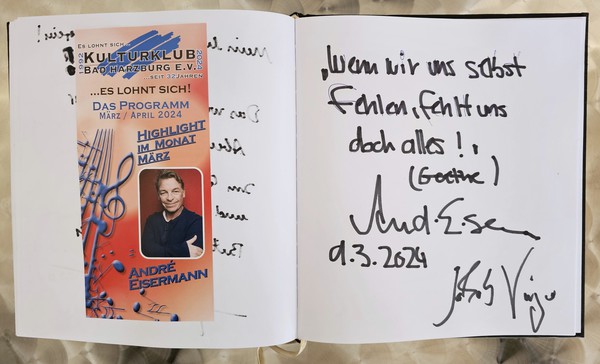 ES LOHNT SICH...
1992
KULTURKLUB
2024
BAD HARZBURG E.V.
...SEIT 32 JAHREN
...ES LOHNT SICH!
DAS PROGRAMM
MÄRZ / APRIL 2024
HIGHLIGHT
IM MONAT
MÄRZ
ANDRÉ
EISERMANN
„Wenn wir uns selbst
fehlen, fehlt uns
doch alles!"
(Goethe)
9.3.2024